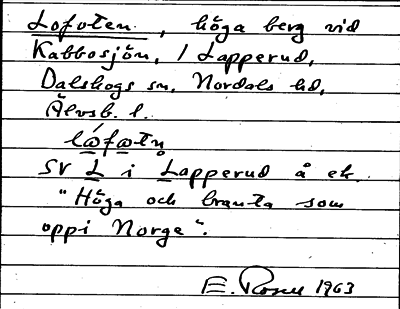 Lofoten, höga berg vid
Kabbosjön, 1 Lapperud,
Dalskogs sn, Nordals hd,
Älvsb. l.
lǻfåtn̥
SV L i Lapperud å ek.
"Höga och branta som
oppi Norge".
E. Rosell 1963